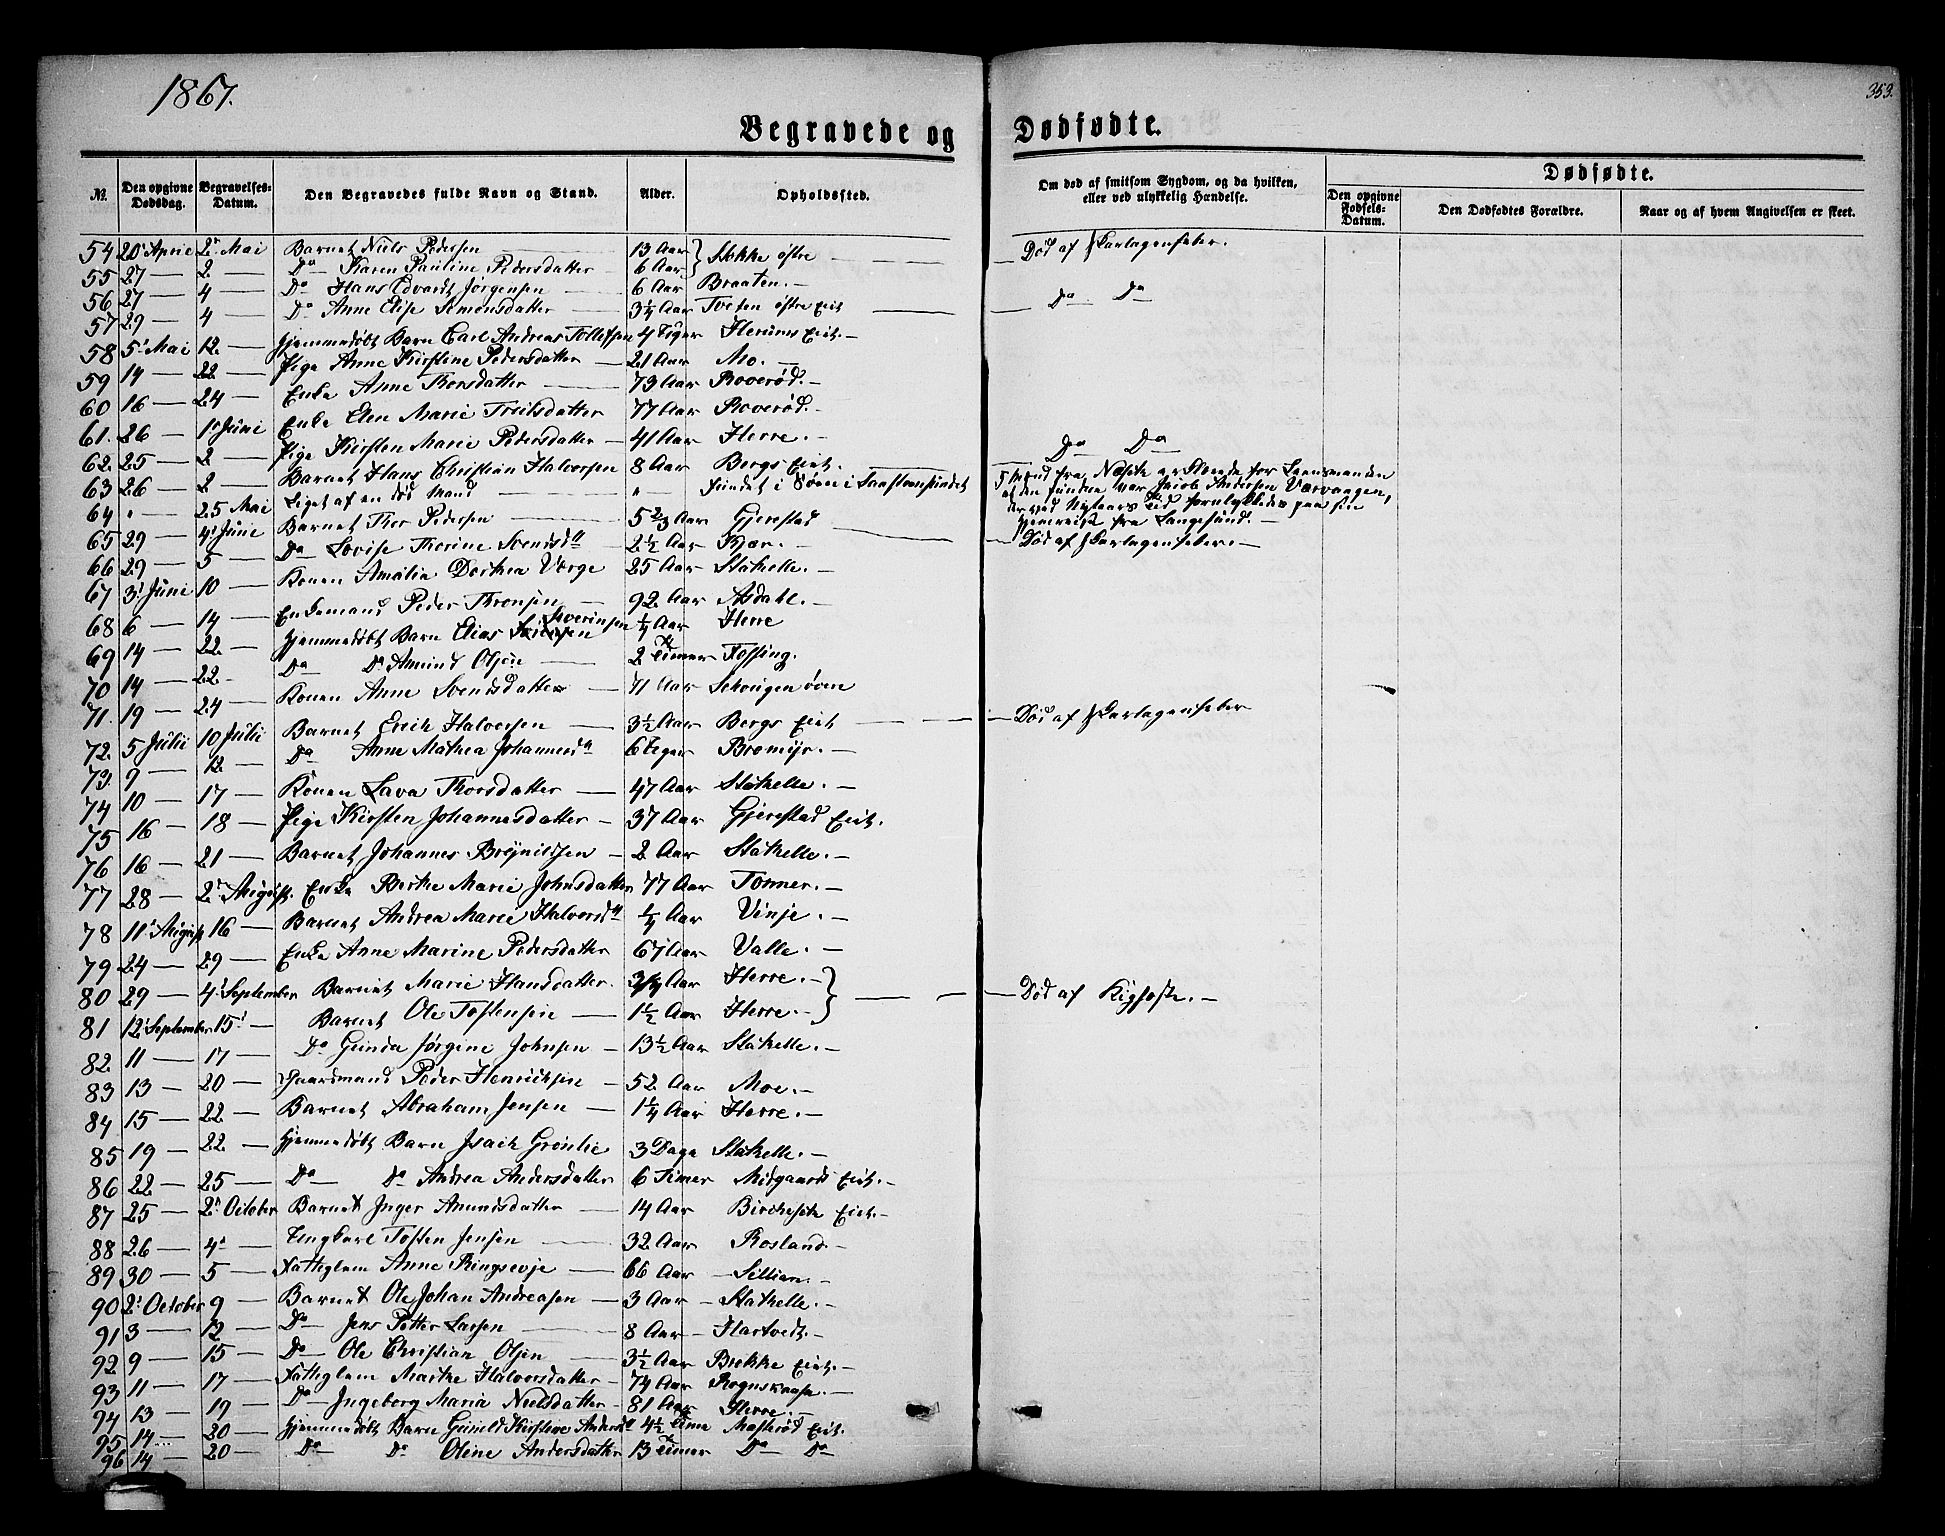 1867.
353.
Begravede og Dødfødte.
№
Den opgivne Dødsdag.
Begravelses-Datum.
Den Begravedes fulde Navn og Stand.
Alder.
Opholdssted.
Om død af smitsom Sygdom, og da hvilken, eller ved ulykkelig Hændelse.
Dødfødte.
Den opgivne Fødsels-Datum.
Den Dødfødtes Forældre.
Naar og af hvem Angivelsen er skeet.
54 20' April 2' Mai Barnet Niels Pedersen 13 Aar Stokke østre Død af Skarlagensfeber.
55 27 — 2 — Do Karen Pauline Pedersdatter 6 Aar
56 27 — 4 — Do Hans Edvardt Jørgensen 6 Aar Braaten.
57 29 — 4 — Do Anne Elise Simonsdatter 3¼ Aar Tveten østre Eiet Do Do
58 5' Mai 12 — Hjemmedøbt Barn Carl Andreas Tollefsen 4 Uger Herums Eiet.
59 14 — 22 — Pige Anne Kirstine Pedersdatter 21 Aar Mo.
60 16 — 24 — Enke Anne Thorsdatter 73 Aar Roverød.
61. 26 — 1' Juni Enke Elen Marie Truelsdatter 77 Aar Roverød.
62. 25 — 2 — Pige Kirsten Marie Pedersdatter 41 Aar Herre.
63 26 — 2 — Barnet Hans Christian Halvorsen 8 Aar Bergs Eiet. Do Do
64 " 25 Mai Liget af en død Mand " Fundet i Søen i
af den fundne var Jacob Andersen
Hjemreise fra Langesund.
65 29 — 4' Juni Barnet Thor Pedersen 5⅔ Aar Gjerestad Død af Skarlagensfeber.
66 29 — 5 — Do Lovise Thorine Svendsd 2½ Aar Kjær.
67 3' Juni 10 — Konen Amalia Dorthea Vorge 25 Aar Stathelle.
68 6 — 14 — Enkemand Peder Thronsen 92 Aar Asdahl.
69 14 — 22 — Hjemmedøbt Barn Elias Severinsen ¼ Aar Herre
70 14 — 22 — Do Do Amund Olsen 2 Timer Fossing.
71. 19 — 24 — Konen Anne Svendsdatter 71 Aar
72. 5 Julii 10 Julii Barnet Erich Halvorsen 3½ Aar Bergs Eiet Død af Skarlagensfeber
73. 9 — 12 — Do Anne Mathea Johannesd 6 Uger Bromyr.
74 10 — 17 — Konen Lava Thorsdatter 47 Aar Stathelle.
75 16 — 18 — Pige Kirsten Johannesdatter 37 Aar Gjerestad Eiet.
76 16 — 21 — Barnet Johannes Brynildsen 2 Aar Stathelle.
77 28 — 2' August. Enke Berthe Marie Johnsdatter 77 Aar Tonner.
78 11' August 16 — Barnet Andrea Marie Halvorsd ¼ Aar Vinje.
79 24 — 29 — Enke Anne Marine Pedersdatter 67 Aar Valle.
80 29 — 4' September Barnet Marie Hansdatter 3/4 Aar Herre. Død af Kighoste.
81 12' September 15' — Barnet Ole Tostensen 1½ Aar Herre.
82. 11 — 17 — Do Gunda Jørgine Johnsen 13½ Aar Stathelle.
83 13 — 20 — Gaardmand Peder Henrichsen 52 Aar Moe.
84 15 — 22 — Barnet Abraham Jensen 1¼ Aar Herre.
85 19 — 22 — Hjemmedøbt Barn Isach Grønlie 3 Dage Stathelle.
86 22 — 25 — Do Do Andrea Andersdatter 6 Timer Midgaards Eiet.
87 25 — 2' October Barnet Inger Amundsdatter 14 Aar Eiet.
88 26 — 4' — Ungkarl Tosten Jensen 32 Aar Rosland.
89 30 — 5 — Fattiglem Anne Ringsevje 66 Aar
90 2' October 9 — Barnet Ole Johan Andreasen 3 Aar Stathelle.
91 3 — 12 — Do Jens Petter Larsen 8 Aar Hartvedt.
92 9 — 15 — Do Ole Christian Olsen 3½ Aar Brekke Eiet.
93 11 — 17 — Fattiglem Marthe Halvorsdatter 74 Aar Rognsaasen.
94 13 — 19 — Do Ingeborg Maria Nielsdatter 81 Aar Herre.
95 14 — 20 — Hjemmedøbt Barn Gunild Kirstine Andersd 4½ Time Masterød Eiet.
96 14 — 20 — Do Do Oline Andersdatter 13 Timer Do Do